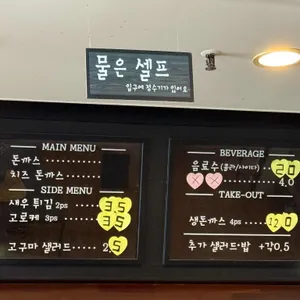 물은 셀프
입구에 정수기가 있어요
MAIN MENU
돈까스
치즈 돈까스
SIDE MENU
새우 튀김 2ps 3.5
고로케 3ps 3.5
고구마 샐러드 2.5
BEVERAGE
음료수 (콜라/사이다) 2.0
4.0
TAKE-OUT
생돈까스 4ps 12.0
추가 샐러드·밥 +각0.5